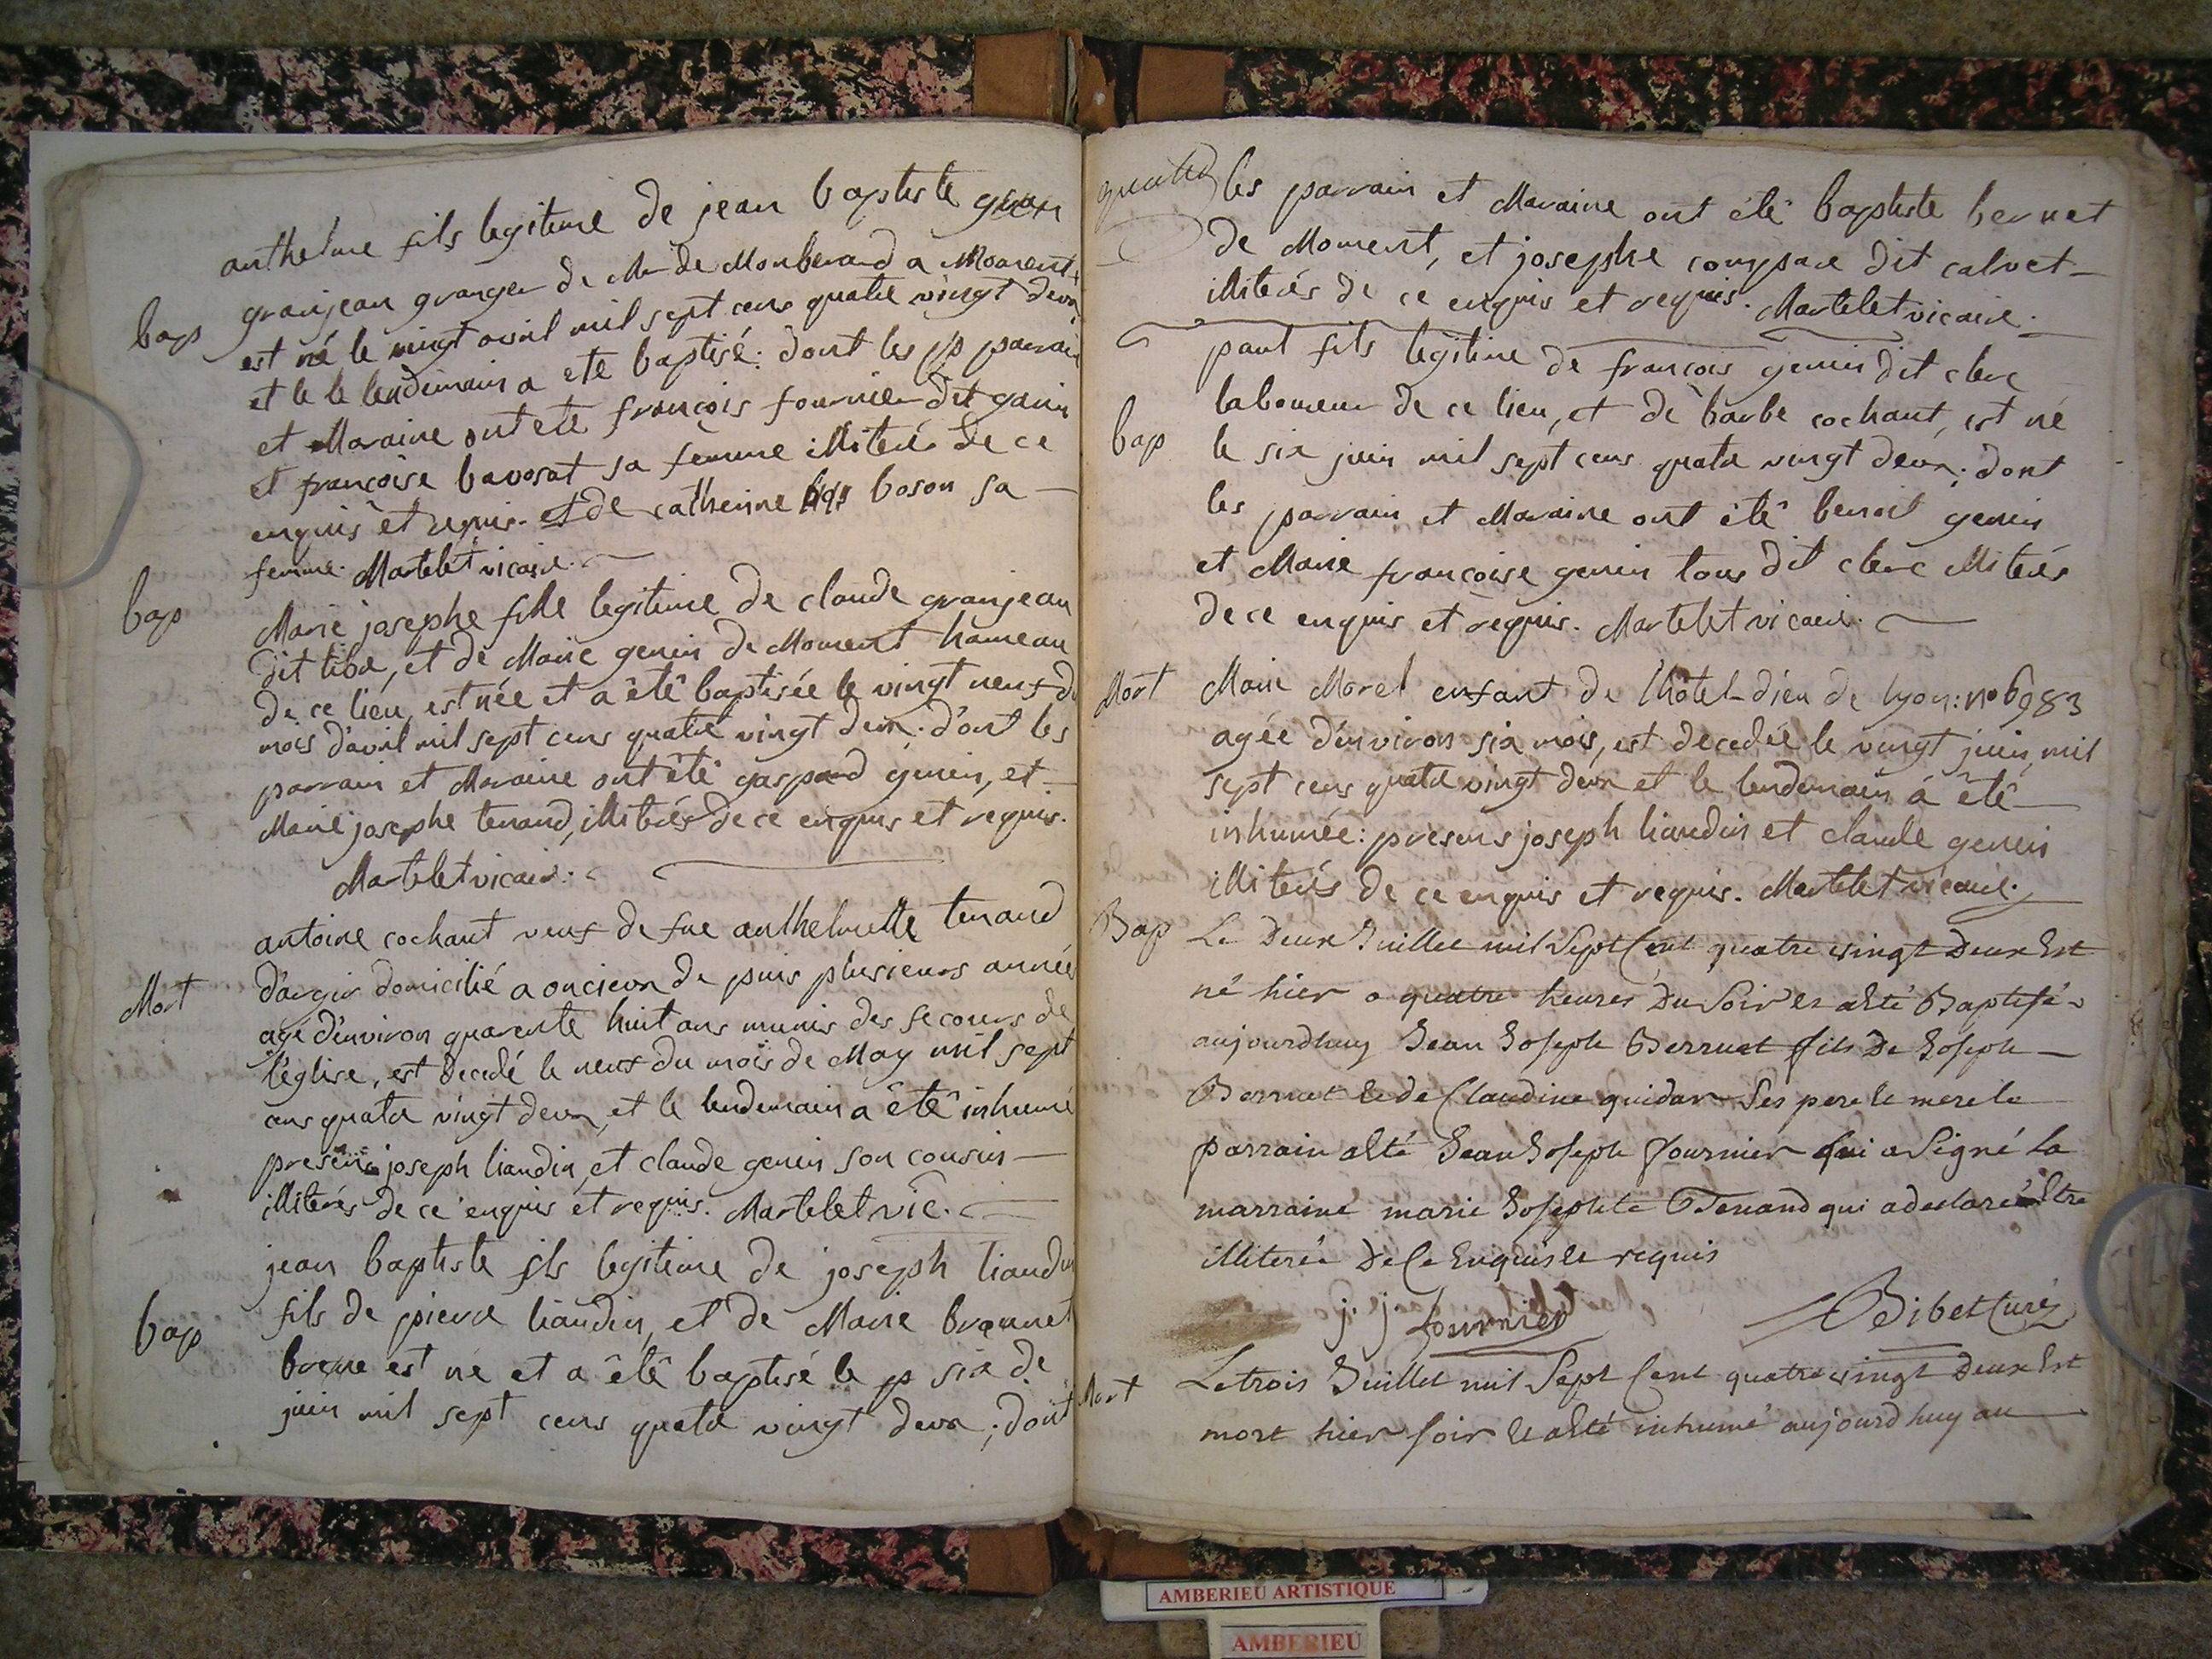 anthelme fils legitime de jean baptiste
bap granjean granger de Mr de Monberard a Moment,
est né le vingt avril mil sept cens quatre vingt deux
et le le lendemain a ete baptisé: dont les p parain
et Maraine ont ete françois fournier dit ganin
et françoise bavosat sa femme illiterés de ce
enquis et requis. et de catherine boson sa
femme. Martelet vicaire.
bap Marie josephe fille legitime de claude granjean
dit tiba, et de Marie genin de Moment hameau
de ce lieu, est née et a êtê baptisée le vingt neuf du
mois d'avril mil sept cens quatre vingt deux: dont les
parrain et Maraine ont êtê gaspard genin, et
Marie josephe tenand, illiterés de ce enquis et requis.
Martelet vicaire.
antoine cochant veuf de fue anthelmette tenand
Mort d'argis domicilié a oncieux de puis plusieurs années
age d'environ quarente huit ans munis des secours de
l'église, est decedé le neuf du mois de May mil sept
cens quatre vingt deux, et le lendemain a êtê inhumé
presens joseph liaudin, et claude genin son cousin
illiterés de ce enquis et requis. Martelet vic.
jean baptiste fils legitime de joseph liaudin
bap fils de pierre liaudin, et de Marie
est né et a êtê baptisé le p six de
juin mil sept cens quatre vingt deux; dont
les parrain et Maraine ont êtê baptiste bernet
de Moment, et josephe compare dit calvet
illiterés de ce enquis et requis. Martelet vicaire.
paul fils legitime de françois genin dit clerc
bap laboureur de ce lieu, et de barbe cochant, est né
le six juin mil sept cens quatre vingt deux; dont
les parrain et Maraine ont êtê benoit genin
et Marie françoise genin tous dit clerc illiterés
de ce enquis et requis. Martelet vicaire.
Mort Marie Morel enfant de l'hôtel-dieu de lyon: no 6983
agée d'environ six mois, est decedée le vingt juin mil
sept cens quatre vingt deux et le lendemain a êtê
inhumée: presens joseph liaudin et claude genin
illiterés de ce enquis et requis. Martelet vicaire.
Bap Le Deux Juillet mil Sept Cent quatre vingt Deux Est
né hier a quatre heures Du Soir et a Eté Baptisé
aujourdhuy Jean Joseph Berruet fils De Joseph
Berruet et de Claudine guidar Ses pere et mere le
parrain a Eté Jean Joseph Fournier qui a Signé la
marraine marie Josephte Tenand qui a declaré Etre
illiterée De Ce Enquis et requis
j. j fournier Bibet Curé
Mort Le trois Juillet mil Sept Cent quatre vingt Deux Est
mort hier soir et a Eté inhumé aujourdhuy au
AMBERIEU ARTISTIQUE
AMBERIEU